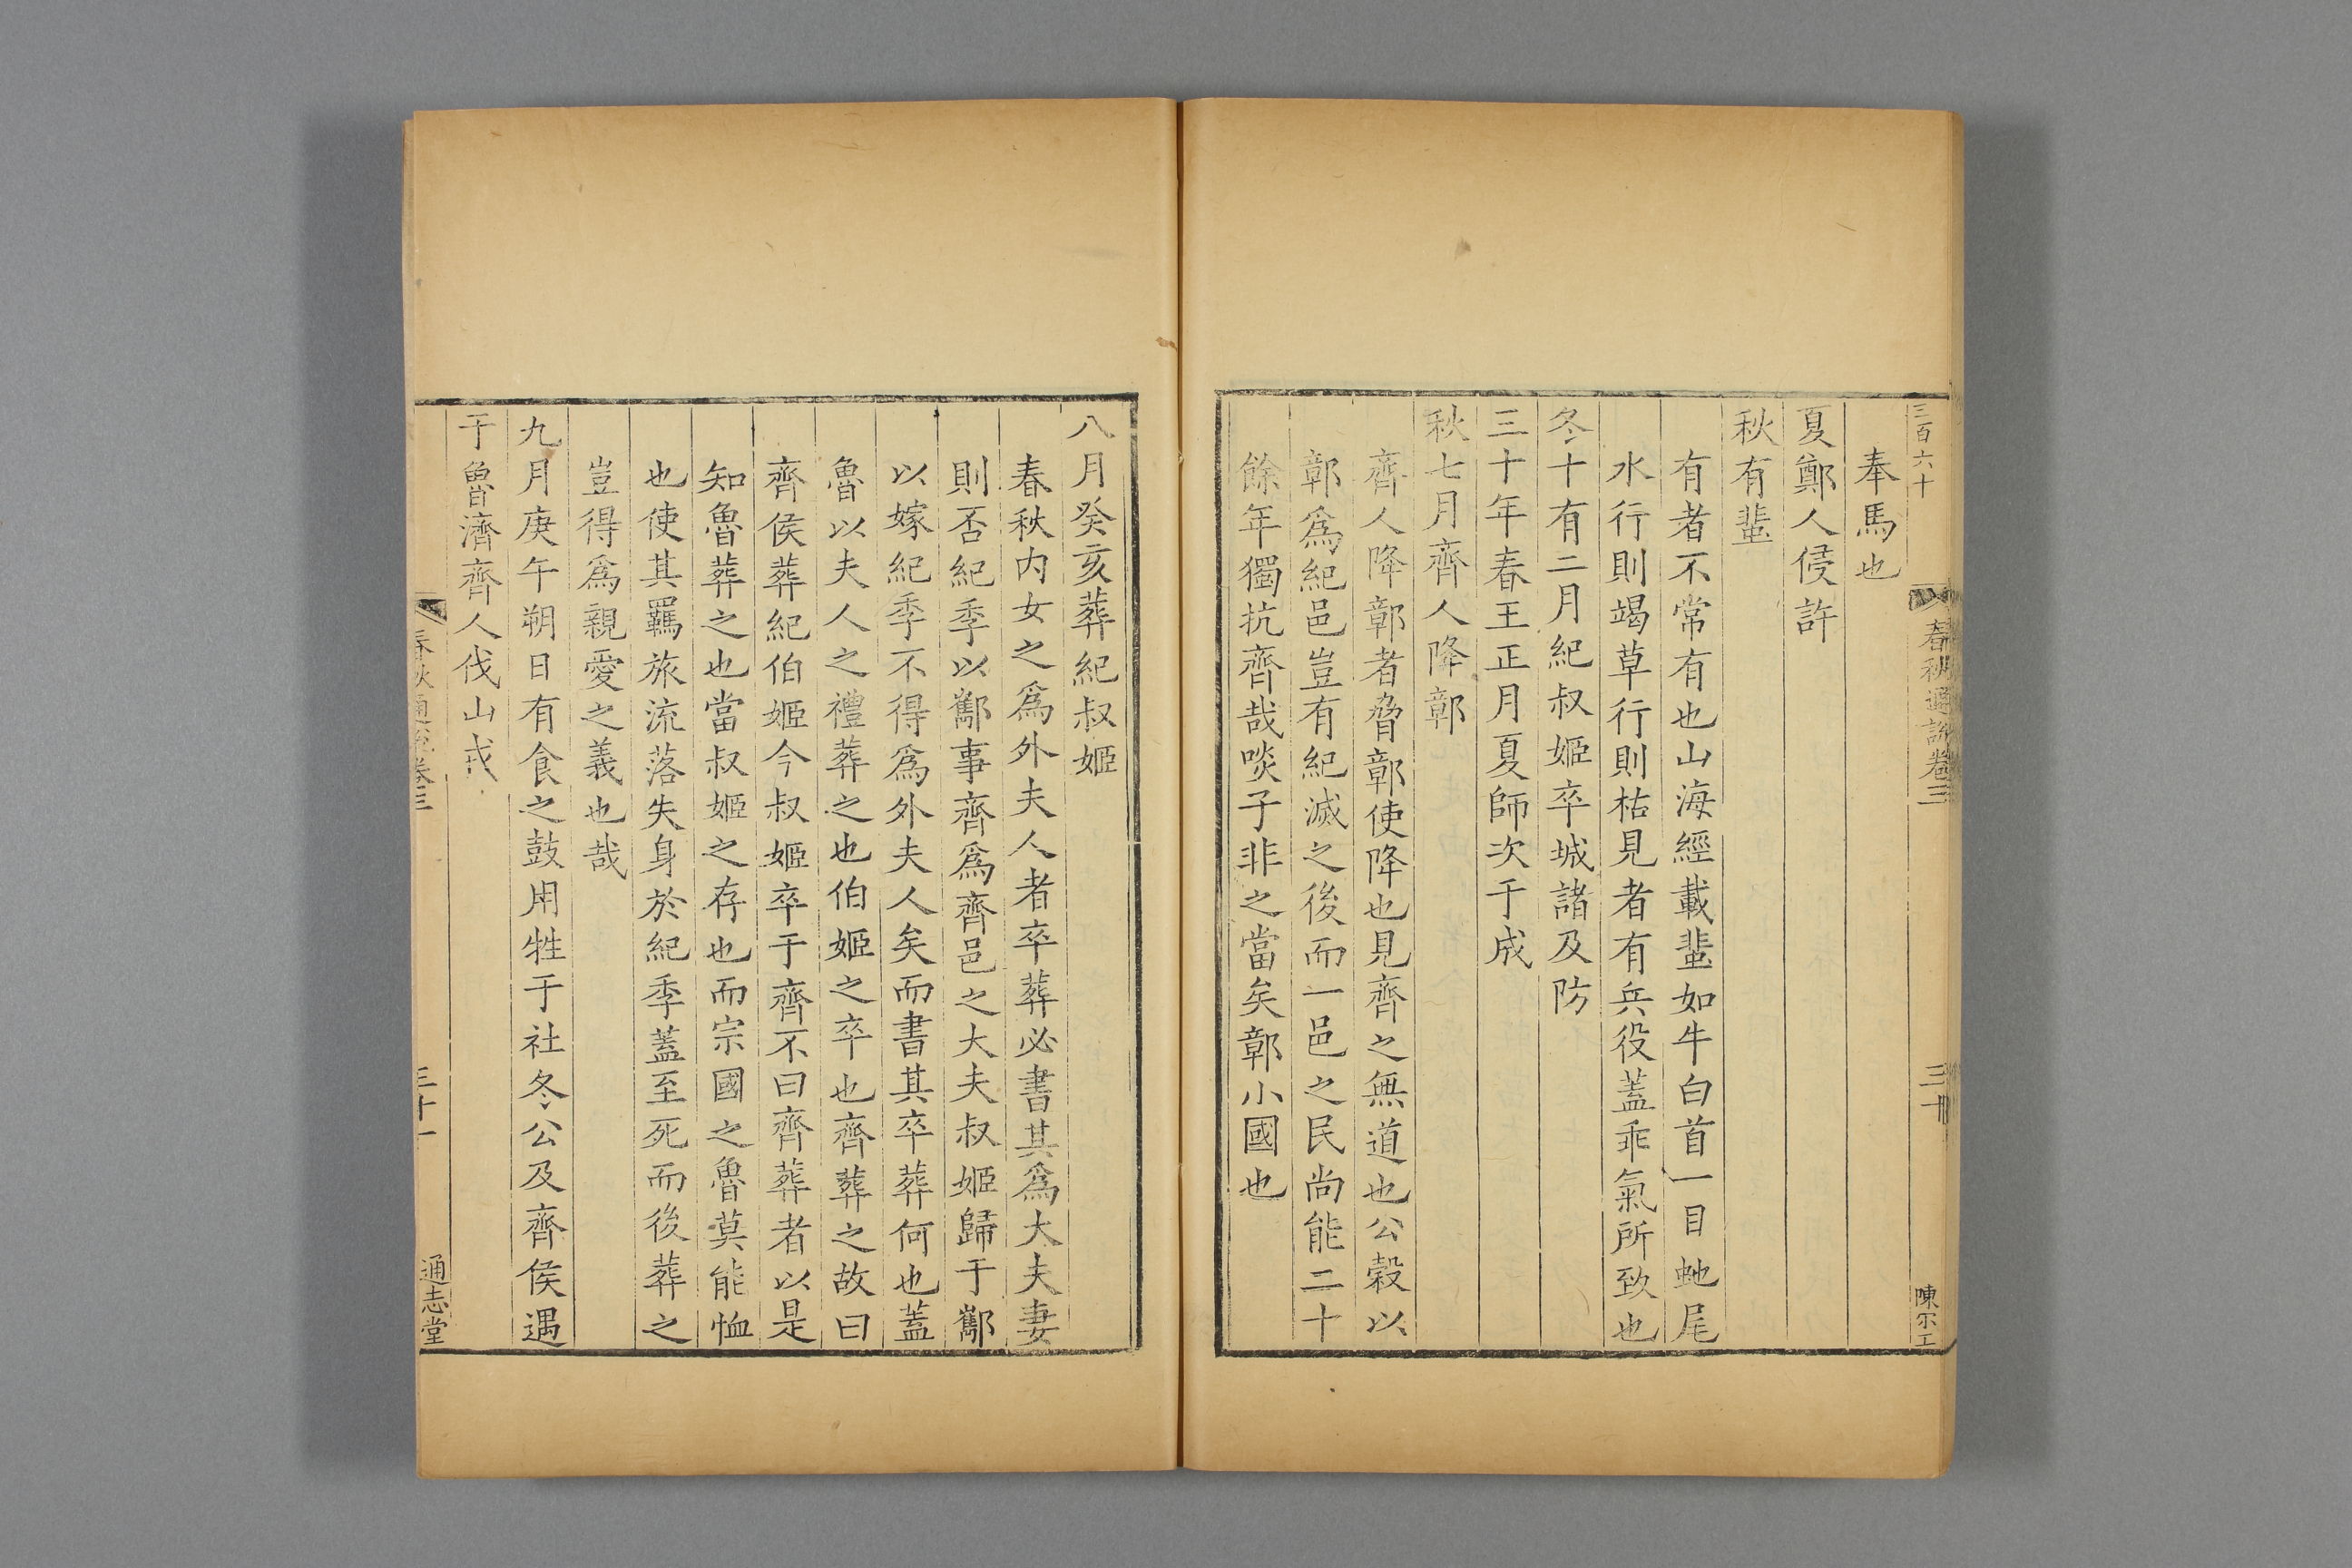 三百六十
春秋通説卷三
三十
陳尔工
奉馬也
夏鄭人侵許
秋有蜚
有者不常有也山海經載蜚如牛白首一目虵尾
水行則竭草行則枯見者有兵役蓋乖氣所致也
冬十有二月紀叔姬卒城諸及防
三十年春王正月夏師次于成
秋七月齊人降鄣
齊人降鄣者脅鄣使降也見齊之無道也公穀以
鄣爲紀邑豈有紀滅之後而一邑之民尚能二十
餘年獨抗齊哉啖子非之當矣鄣小國也
八月癸亥葬紀叔姬
春秋内女之爲外夫人者卒葬必書其爲大夫妻
則否紀季以酅事齊爲齊邑之大夫叔姬歸于酅
以嫁紀季不得爲外夫人矣而書其卒葬何也蓋
魯以夫人之禮葬之也伯姬之卒也齊葬之故曰
齊侯葬紀伯姬今叔姬卒于齊不曰齊葬者以是
知魯葬之也當叔姬之存也而宗國之魯莫能恤
也使其羈旅流落失身於紀季蓋至死而後葬之
豈得爲親愛之義也哉
九月庚午朔日有食之鼓用牲于社冬公及齊侯遇
于魯濟齊人伐山戎
春秋通説卷三
三十一
通志堂